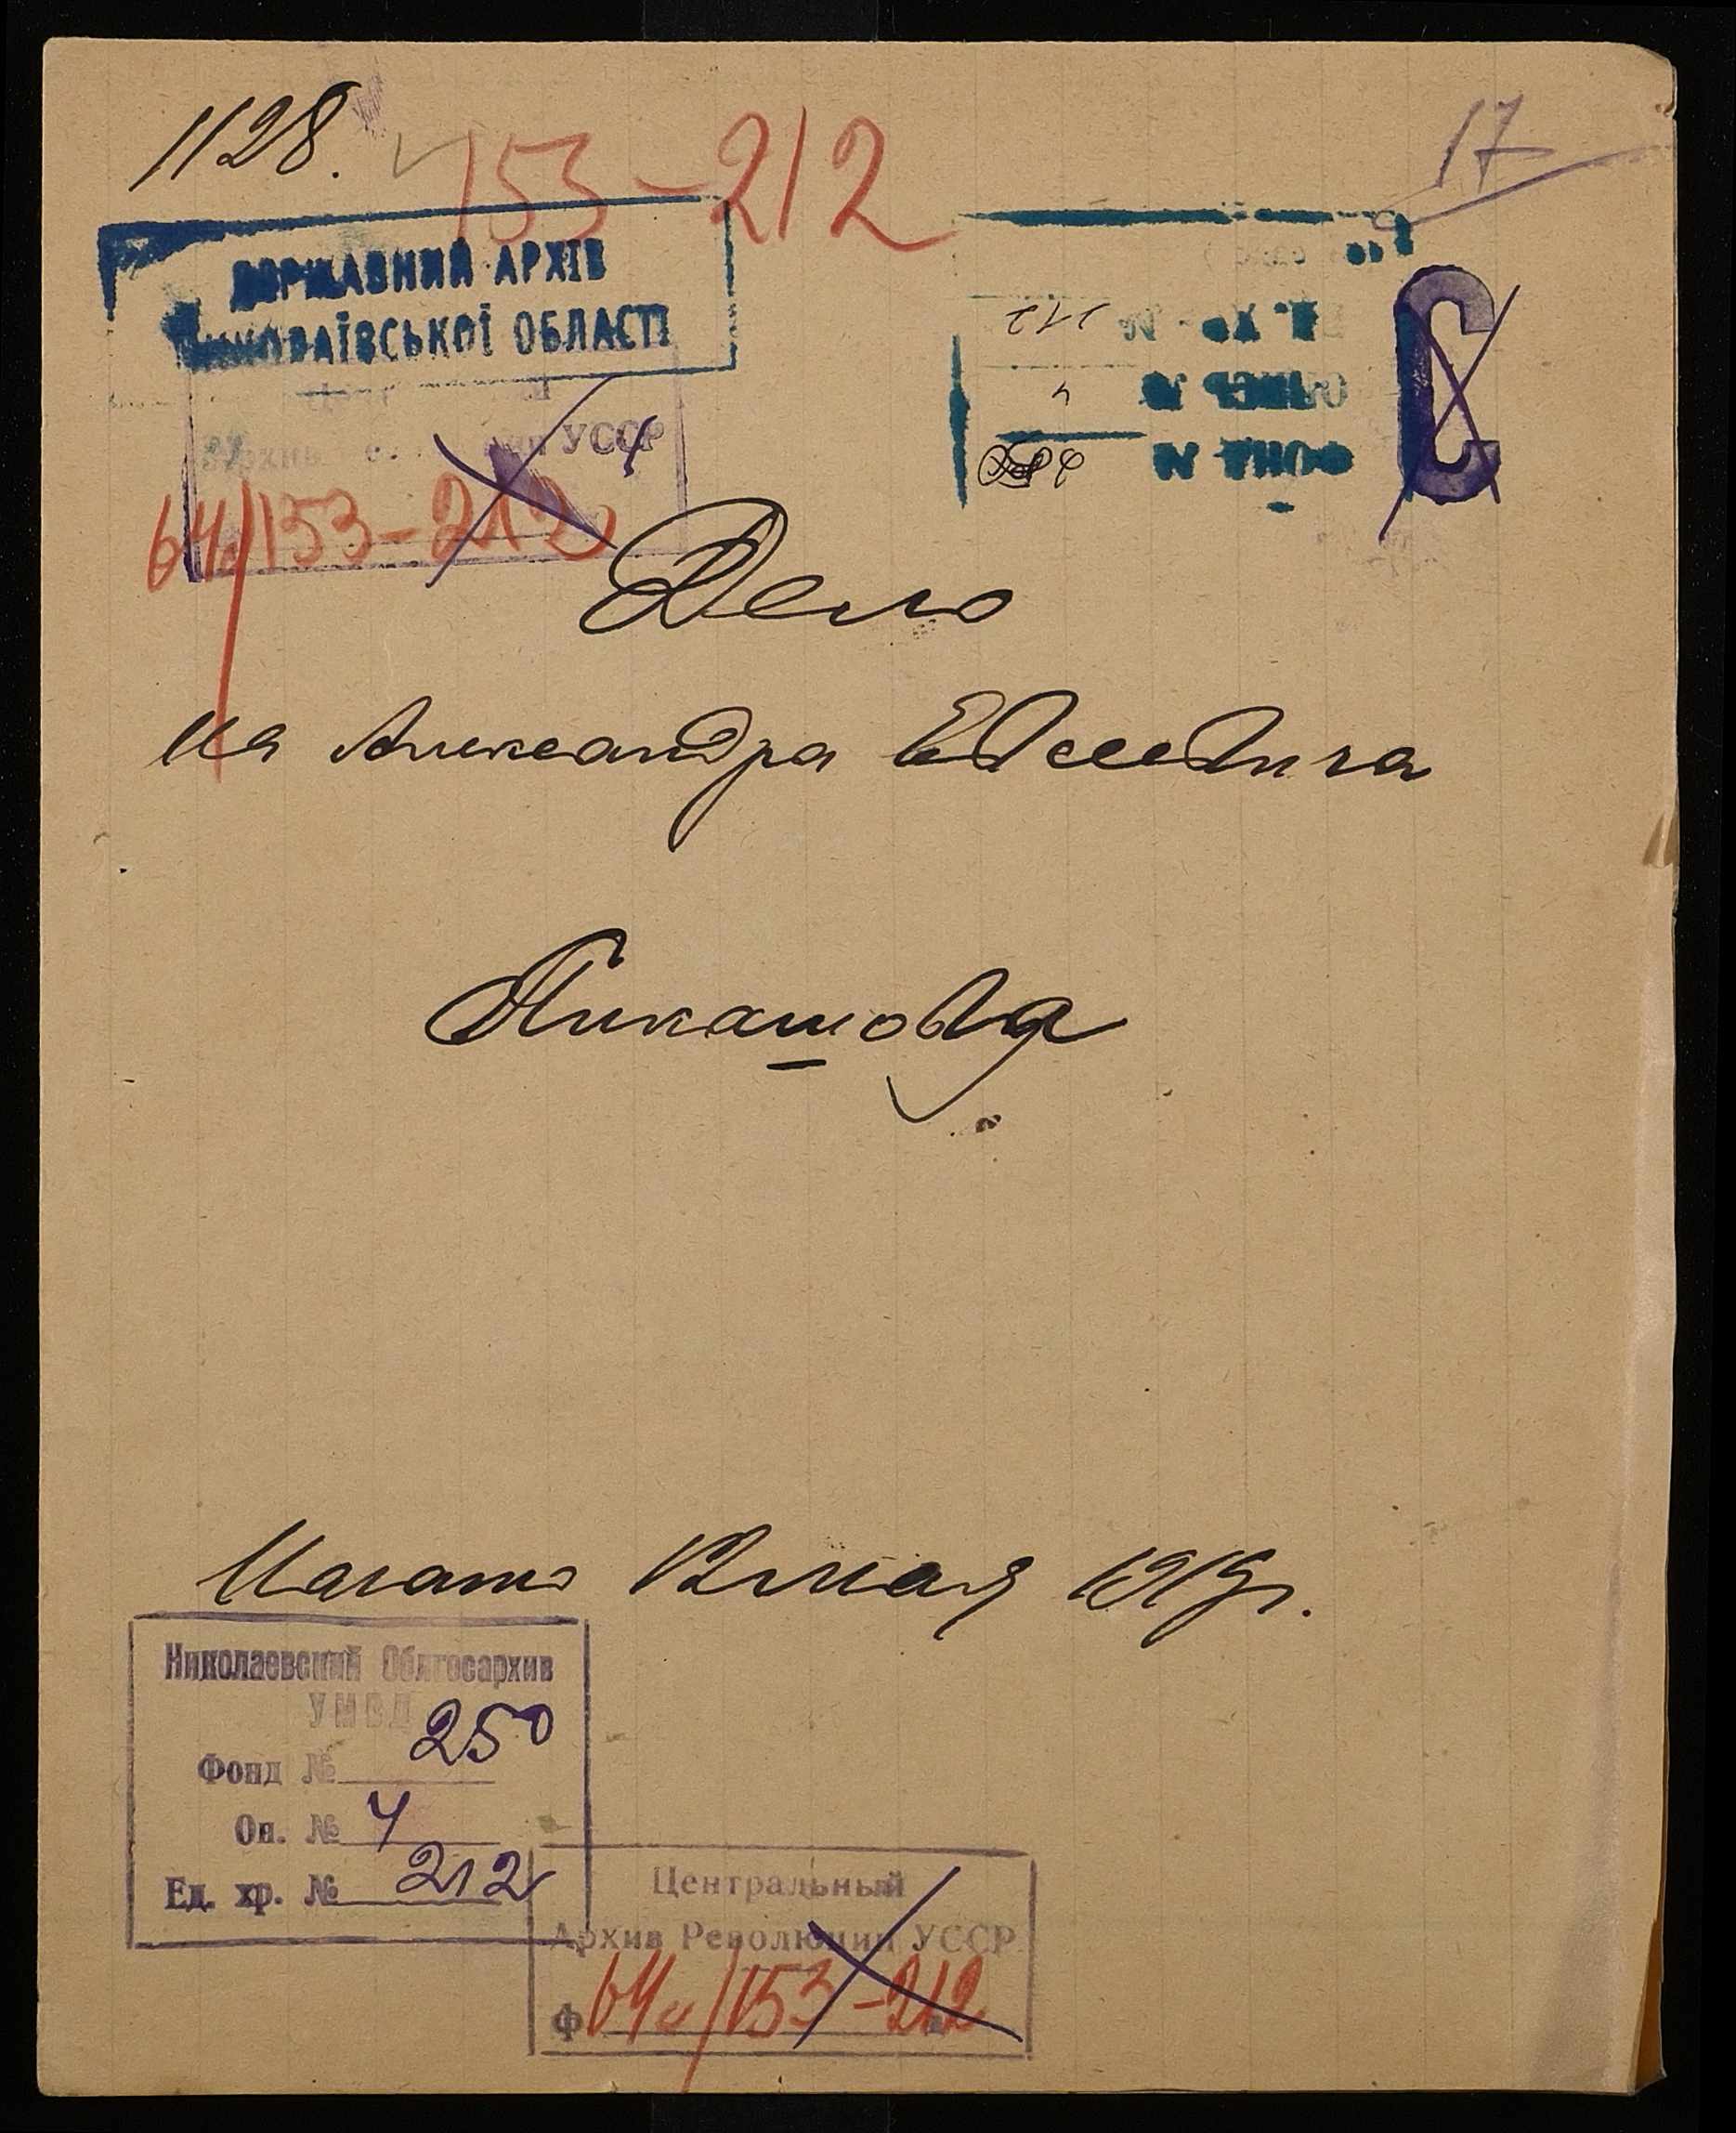 1128.
153-212
17
ДЕРЖАВНИЙ АРХІВ
МИКОЛАЇВСЬКОЇ ОБЛАСТІ
УССР
64а/153-212
Ед. хр. № 212
Опись № 4
Фонд №
С
Дело
на Александра Евсеевича
Пикашова
Начато 12 мая 1919 г.
Николаевский Облгосархив
УМВД
Фонд № 250
Оп. № 4
Ед. хр. № 212
Центральный
Архив Революции УССР
Ф 64а/153-212